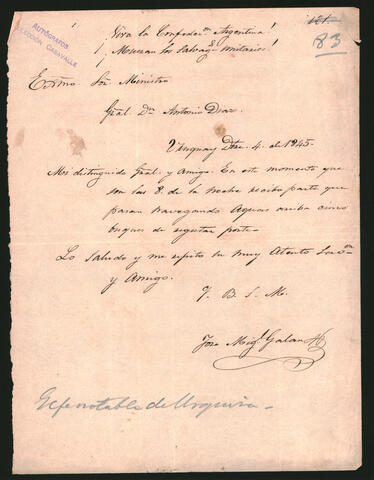 AUTÓGRAFOS
COLECCION CASAVALLE
121.
83
¡ Viva la Confeder.on Argentina!
¡ Mueran los Salvages Unitarios!
Exmo Sor Ministro
Gral. Dn Antonio Diaz.
Uruguay Dbre. 4. de 1845.
Mui distinguido Gral. y Amigo. En este momento que
son las 8. de la noche recibo parte que
pasan navegando Aguas arriba cinco
buques de regular porte.
Lo Saludo y me repito su muy Atento Serv.or
y Amigo.
Q. B. S. M.
Jose Migl. Galan
Gefe notable de Urquiza.